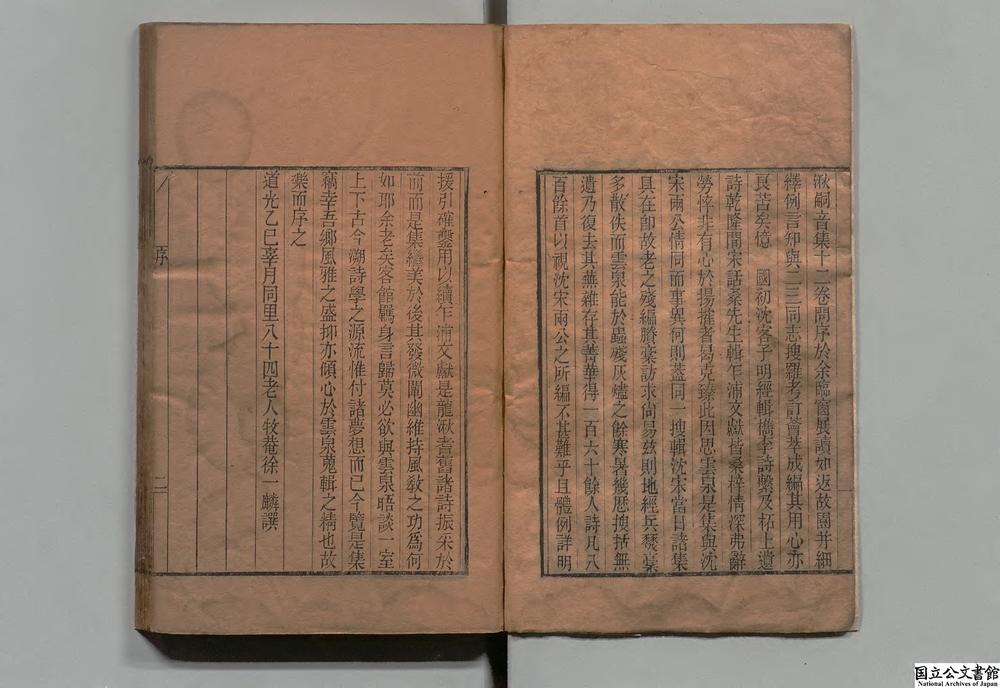 湫嗣音集十二卷問序於余臨窗展讀如返故園井細
繹例言知與二三同志搜羅考訂薈萃成編其用心亦
良苦矣憶　國初沈客子明經輯檇李詩繫及柘上遺
詩乾隆閒宋話桑先生輯乍浦文獻皆桑梓情深弗辭
勞悴非有心於揚搉者曷克臻此因思雲泉是集與沈
宋兩公情同而事異何則蓋同一搜輯沈宋當日諸集
具在卽故老之殘編賸稾訪求尙易茲則地經兵燹稾
多散佚而雲泉能於蟲殘灰燼之餘寒暑幾歷搜括無
遺乃復去其蕪雜存其菁華得一百六十餘人詩凡八
百餘首以視沈宋兩公之所編不甚難乎且體例詳明
援引確鑿用以續乍浦文獻是龍湫耆舊諸詩振采於
前而是集繼美於後其發微闡幽維持風敎之功爲何
如耶余老矣客館羈身言歸莫必欲與雲泉晤談一室
上下古今溯詩學之源流惟付諸夢想而已今覽是集
竊幸吾鄕風雅之盛抑亦傾心於雲泉蒐輯之精也故
樂而序之
道光乙巳辜月同里八十四老人牧菴徐一麟譔
序
二
国立公文書館
National Archives of Japan